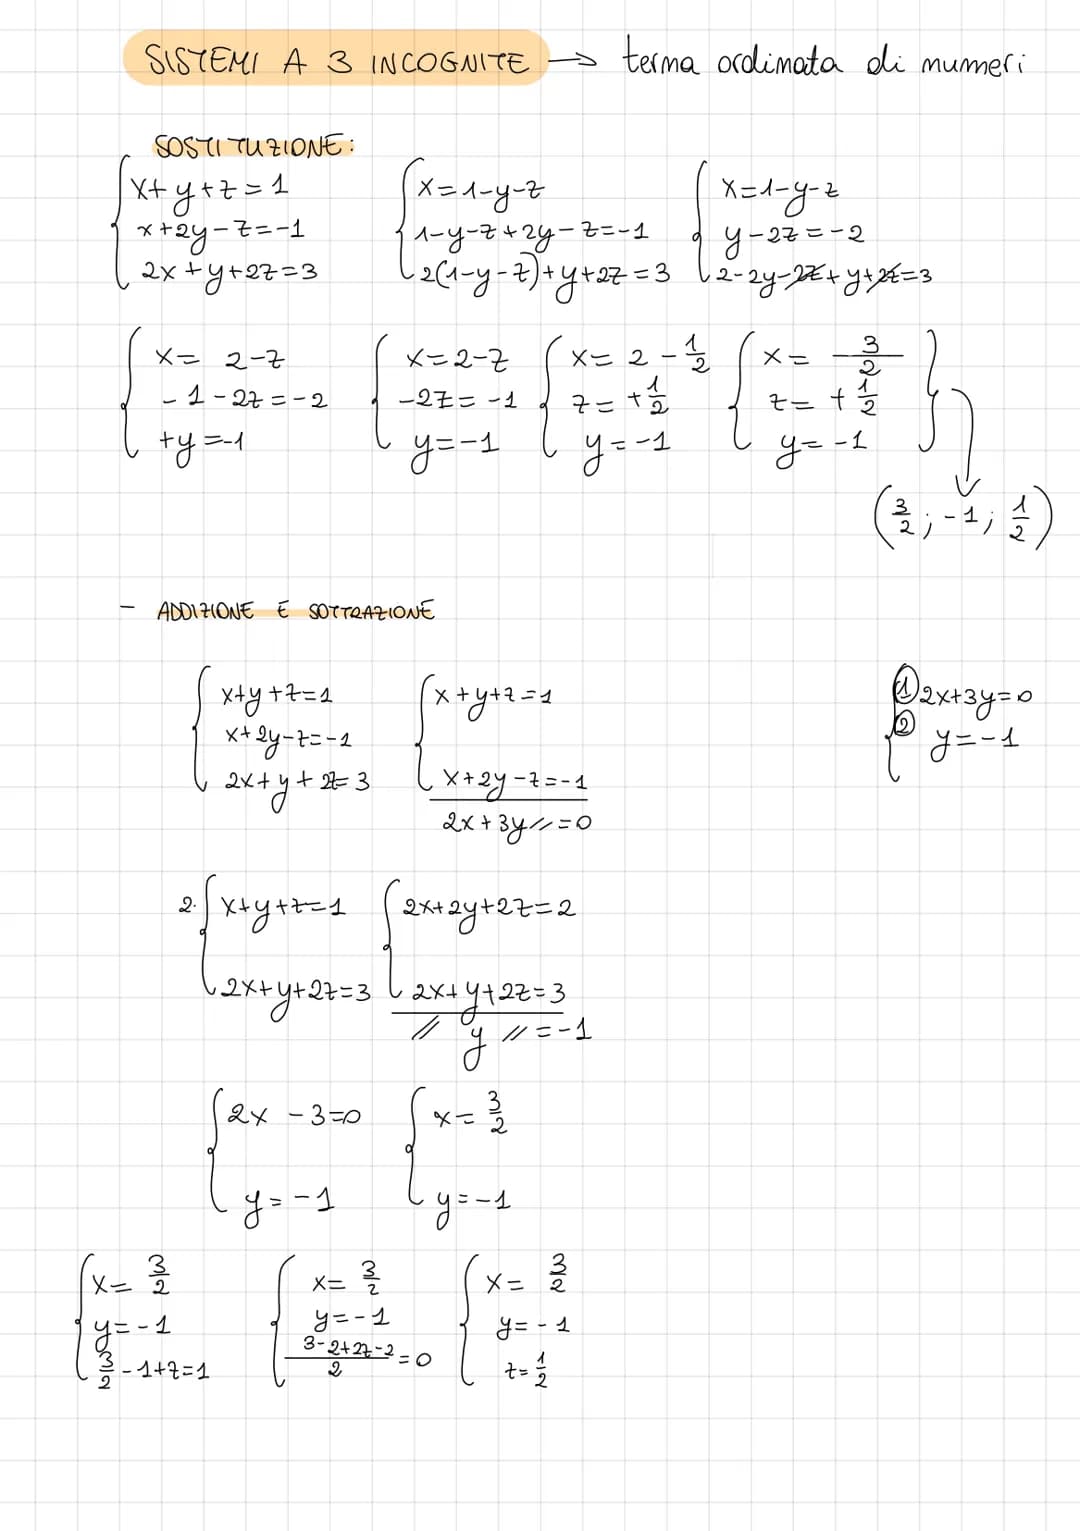 SISTEMI A 3 INCOGNITE → terma ordimata di mumeri
SOSTITUZIONE:
x+y+z=1
x+2y-z=-1
2x+y+2z=3
x=1-y-z
1-y-z+2y-z=-1
2(1-y-z)+y+2z=3
x=1-y-z
y-2z=-2
2-2y-2z+y+2z=3
x= 2-z
-1-2z=-2
+y=-1
x=2-z
-2z=-1
y=-1
x= 2 - 1/2
z= + 1/2
y=-1
x= 3/2
z= + 1/2
y= -1
(3/2; -1; 1/2)
- ADDIZIONE E SOTTRAZIONE
x+y+z=1
x+2y-z=-1
2x+y+2z=3
x+y+z=1
x+2y-z=-1
2x+3y//=0
① 2x+3y=0
② y=-1
2. x+y+z=1
2x+y+2z=3
2x+2y+2z=2
2x+y+2z=3
// y //=-1
2x -3=0
y=-1
x= 3/2
y=-1
x= 3/2
y=-1
3/2 -1+z=1
x= 3/2
y=-1
3-2+2z-2/2 =0
x= 3/2
y= -1
z= 1/2